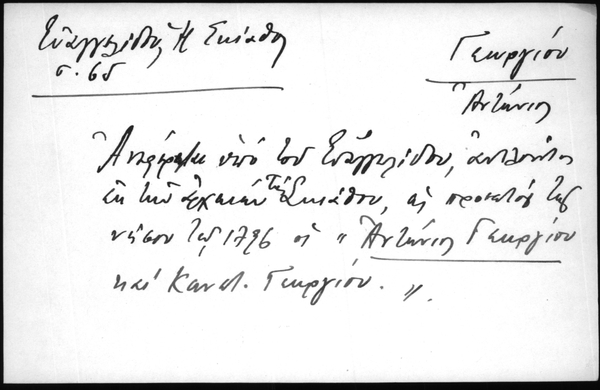 Εὐαγγελίδου, Ἡ Σκιάθος
σ. 65
Γεωργίου
Ἀντώνιος
Ἀναφέρεται ὑπό τοῦ Εὐαγγελίδου, ἀντλοῦντος
ἐκ τῶν ἀρχείων τῆς Σκιάθου, ὡς προεστοί τῆς
νήσου τῷ 1796 οἱ " Ἀντώνιος Γεωργίου
καί Κωνστ. Γεωργίου. ".